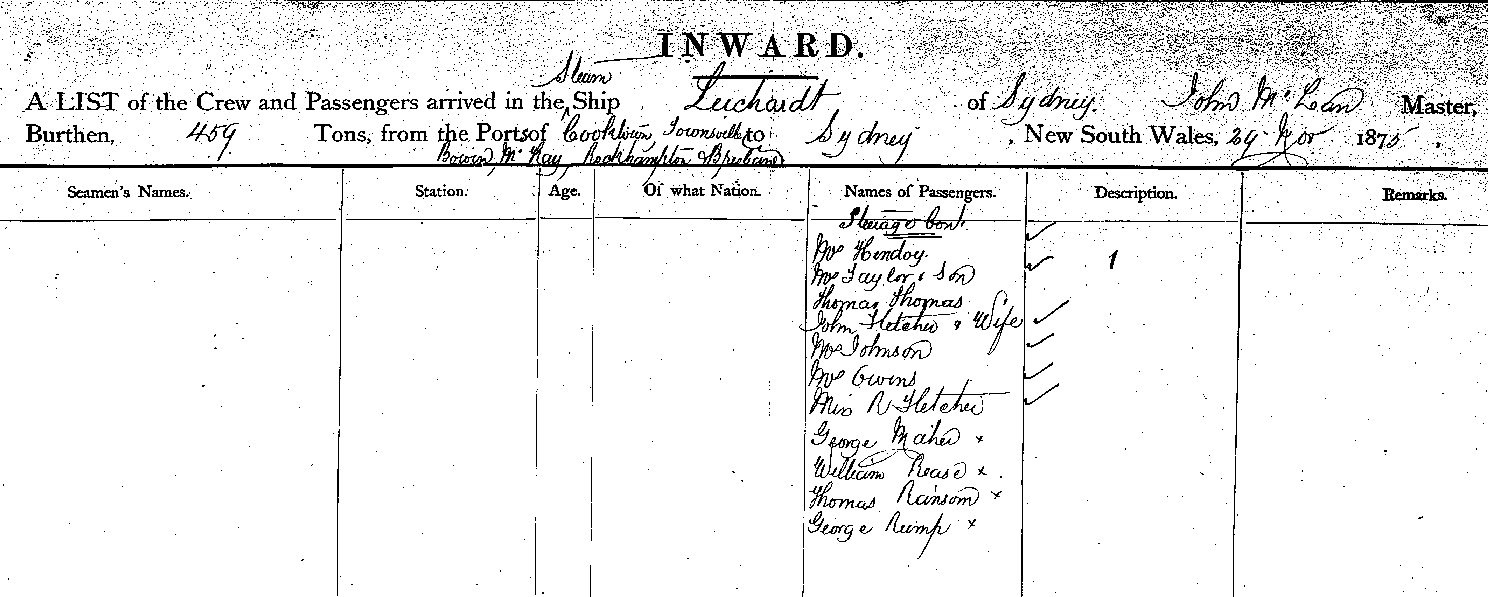 INWARD.
Steam
A LIST of the Crew and Passengers arrived in the Ship Leichardt of Sydney. John McLean Master,
Burthen, 459 Tons, from the Ports of Cooktown, Townsville to Sydney, New South Wales, 29 Nov 1875.
Bowen, McKay, Rockhampton & Brisbane
Seamen's Names. Station. Age. Of what Nation. Names of Passengers. Description. Remarks.
Steerage Cont.
Mrs Hendoy.
Mrs Taylor & Son 1
Thomas Thomas
John Fletcher & Wife
Mrs Johnson
Mrs Owens
Miss R Fletcher
George Maher x
William Rease x
Thomas Ransom x
George Rump x